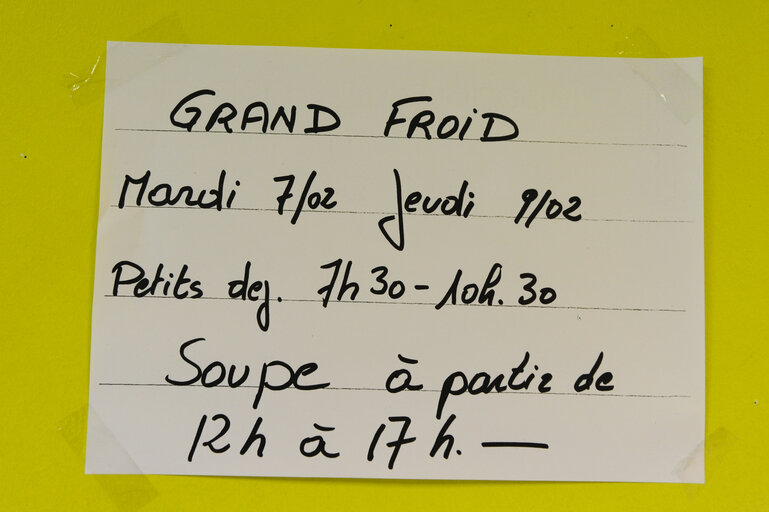 GRAND FROID
Mardi 7/02 Jeudi 9/02
Petits dej. 7h30-10h.30
Soupe à partir de
12h à 17h. —